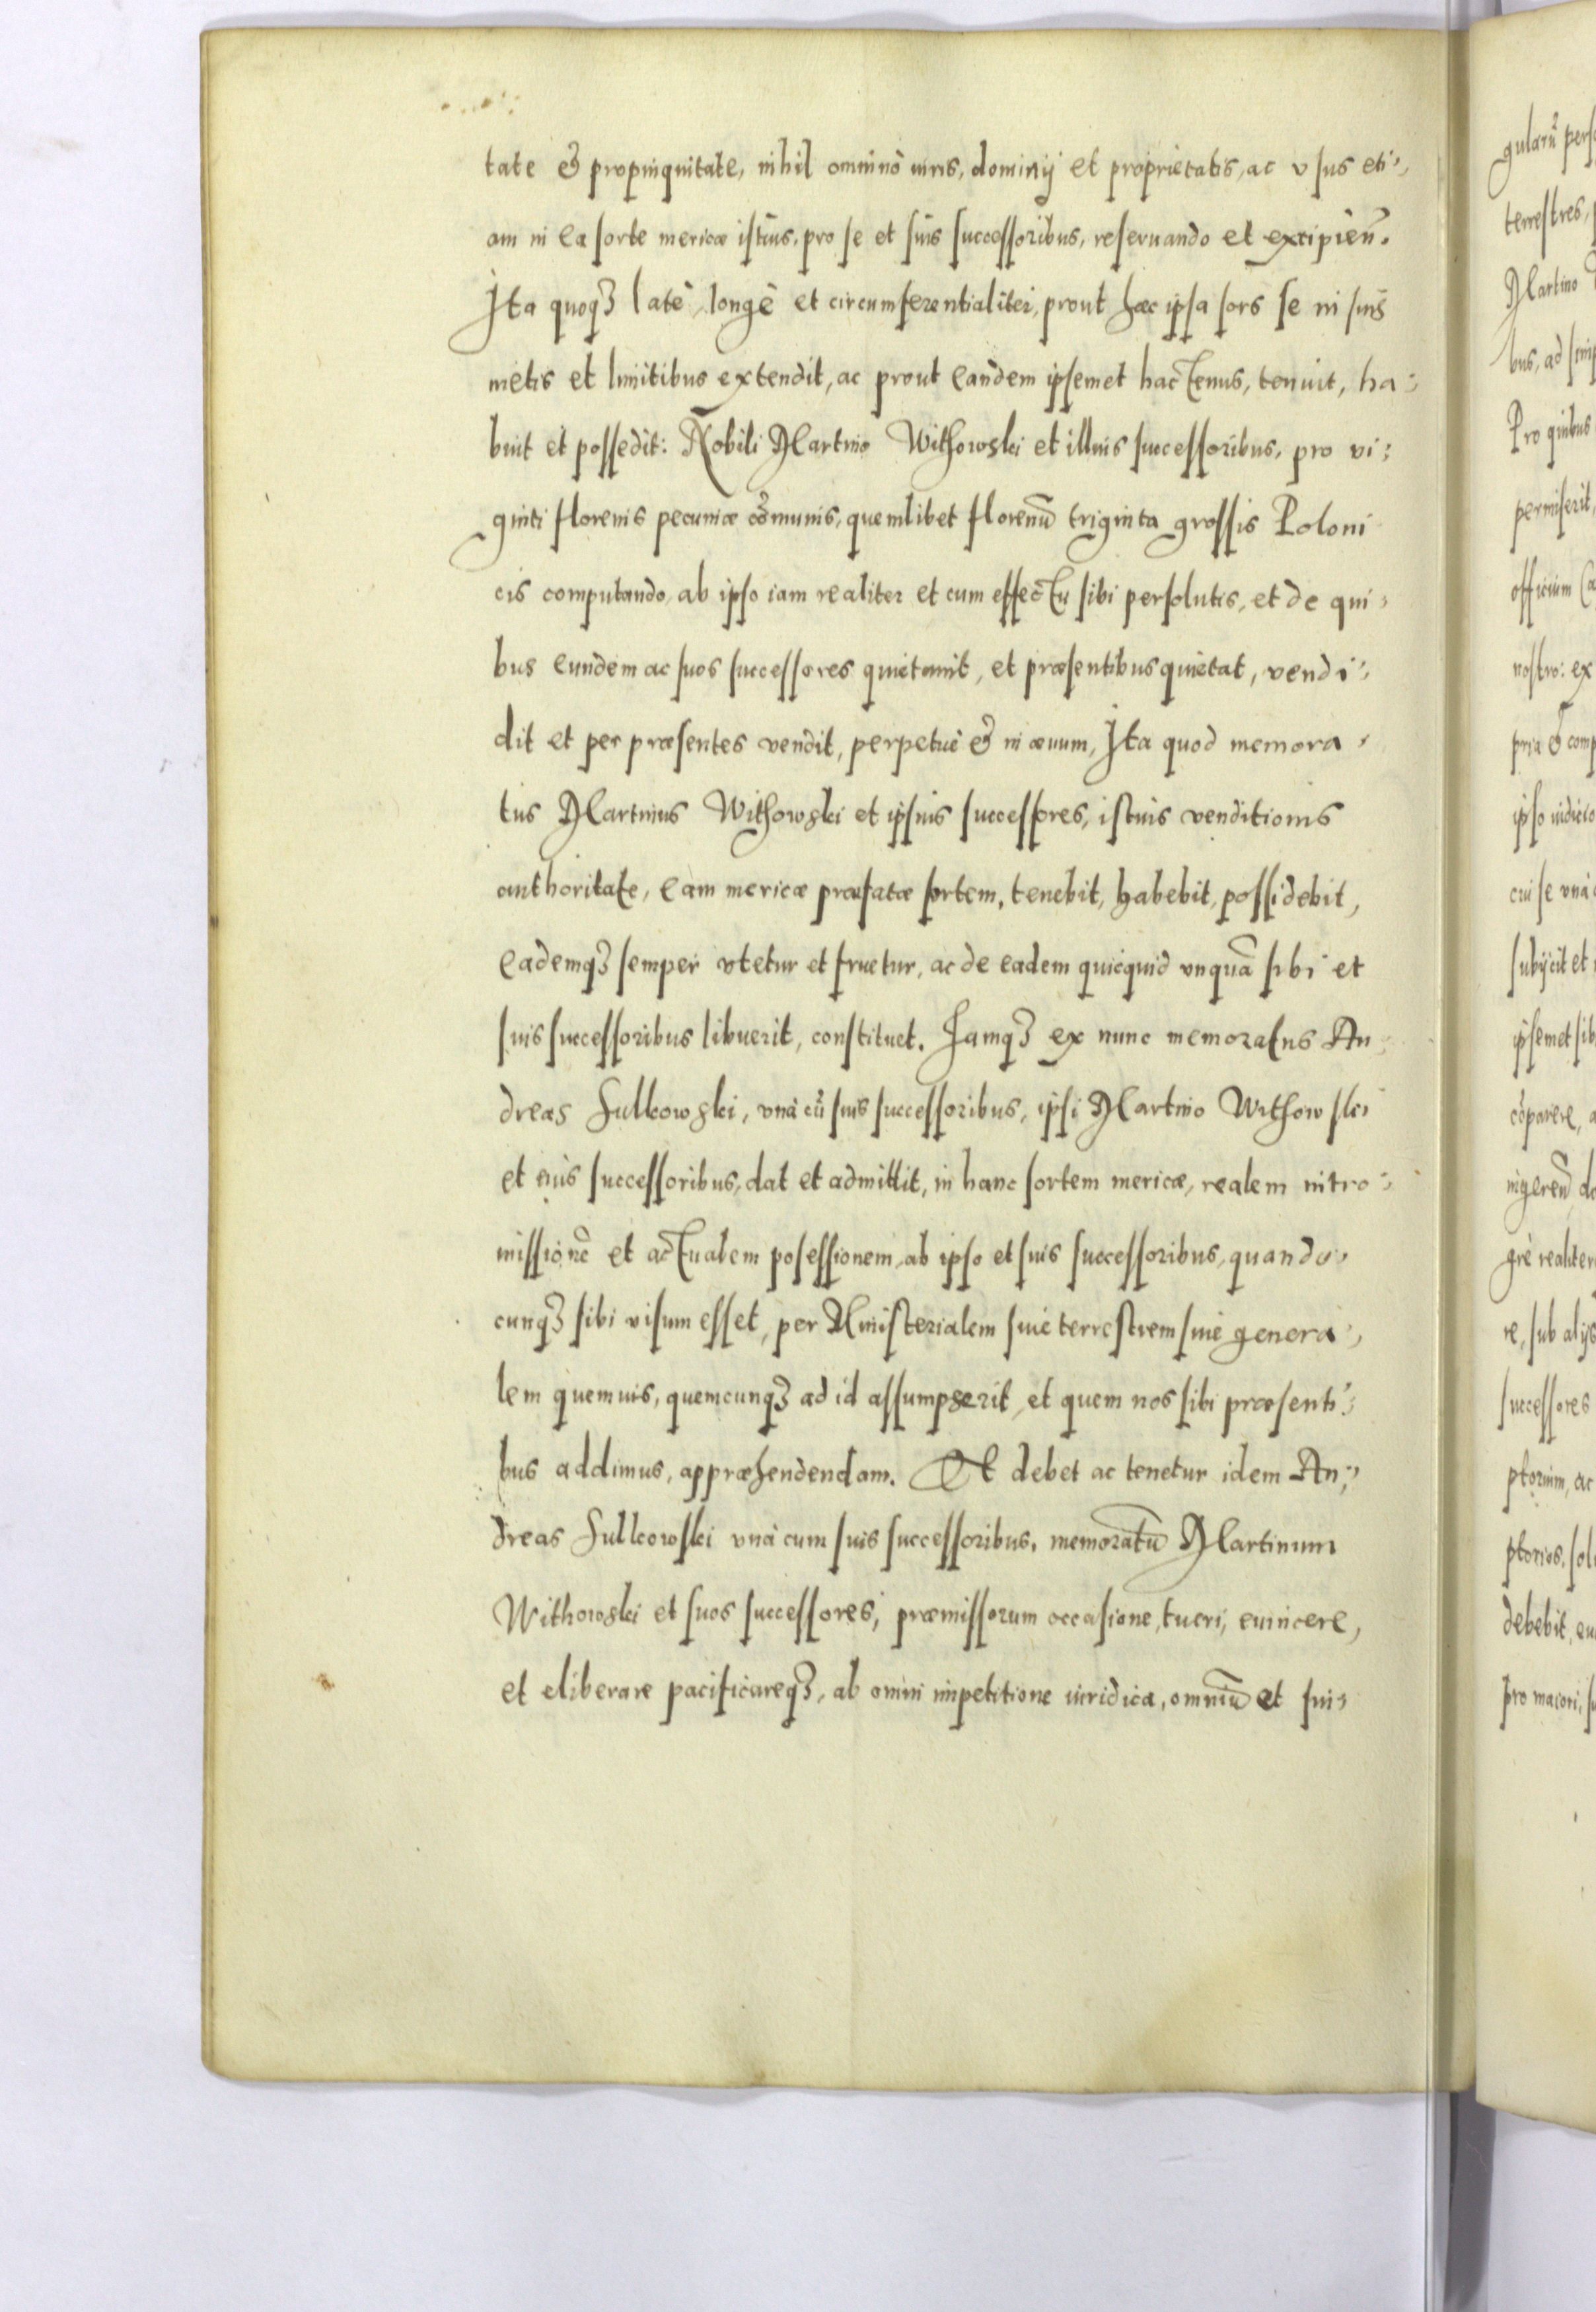 tate & propinquitate, nihil omninò iuris, dominij et proprietatis, ac vsus eti⸗
am in ea sorte mericæ istius, pro se et suis successoribus, reseruando et excipien̄.
Ita quoqȝ latè, longè et circumferentialiter, prout hæc ipsa sors se in suis
metis et limitibus extendit, ac prout eandem ipsemet hactenus, tenuit, ha⸗
buit et possedit: Nobili Martino Withowski et illius successoribus, pro vi⸗
ginti florenis pecuniæ cōmunis, quemlibet florenū triginta grossis Poloni
cis computando, ab ipso iam realiter et cum effectu sibi persolutis, et de qui⸗
bus eundem ac suos successores quietauit, et præsentibus quietat, vendi⸗
dit et per præsentes vendit, perpetuè & in æuum, Ita quod memora⸗
tus Martinus Withowski et ipsius successores, istius venditionis
authoritate, eam mericæ præfatæ sortem, tenebit, habebit, possidebit,
eademqȝ semper vtetur et fruetur, ac de eadem quicquid vnquā sibi et
suis successoribus libuerit, constituet. Iamqȝ ex nunc memoratus An⸗
dreas Sulkowski, vnà cū suis successoribus, ipsi Martino Withowski
et eius successoribus, dat et admittit, in hanc sortem mericæ, realem intro⸗
missionē et actualem posessionem, ab ipso et suis successoribus, quando⸗
cunqȝ sibi visum esset, per Ministerialem siue terrestrem siue genera⸗
lem quemuis, quemcunqȝ ad id assumpserit, et quem nos sibi præsenti⸗
bus addimus, appræhendendam. Et debet ac tenetur idem An⸗
dreas Sulkowski vnà cum suis successoribus, memoratū Martinum
Withowski et suos successores, præmissorum occasione, tueri, euincere,
et eliberare pacificareqȝ, ab omni impetitione iuridica, omniū et sin⸗
gularū
terrestres,
Martino
bus, ad
Pro quibus
permiserit,
officium
nostro: ex
pria &
ipso iudicio
cui se vnà
subijcit et
ipsemet
cōparere,
ingeren̄
grè realiter
re, sub alijs
successores
ptorium, ac
ptorios,
debebit,
pro maiori,